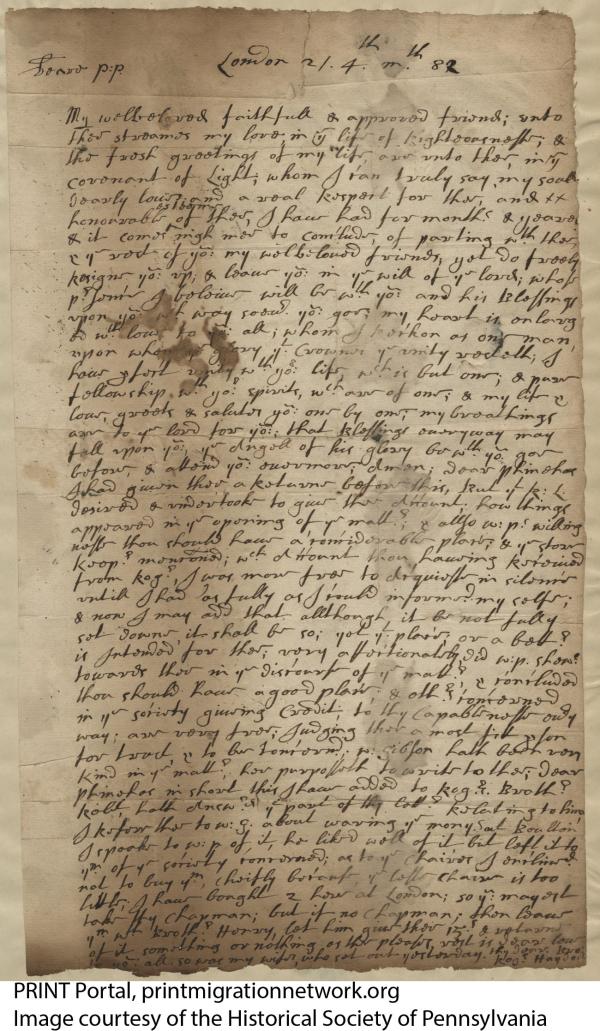 Deare p:p.
London 21. 4th m.th 82
My welbeloved faithfull & approved friend; unto
thee streames my love; in ye life of Righteousnesse; &
the fresh greetings of my life are unto thee, in ye
Covenant of Light; whom I can truly say my soul
dearly loves; and a real respect for thee, and
honourable esteeme of thee, I have had for months & yeares
& it comes nigh mee to conclude, of parting wth thee,
& ye rest of yo: my welbeloved friends, yet do freely
Resigne yo: up; & leave yo: in ye will of ye lord; whose
I beleive will be wth yo: and his Blessings
upon yo: way soever yo: goe; my heart is enlarg
ed wth love to yo: all; whom I reckon as one man,
upon whom ye very Crowne ye unity resteth; I
have unity wth yo: life, wch is but one; & pure
fellowship, wth yo: spirits, wch are of one; & my life
love, greets & salutes yo: one by one; my breathings
are to ye lord for yo:; that Blessings everyway may
fall upon yo:, ye Angell of his glory be wth yo: goe
before, & attend yo: evermore, Amen; dear Phinehas
I had given thee a returne before this, But yt R: L:
desired & undertooke to give thee Account; how things
appeared in ye opening of ye matt:r & allso w: p:s willing
nesse thou should have a considerable place; & ye store
keep:r mentioned; wch Account thou having Received
from Rog:r, I was more free to acquiesse in silence
untill I had as fully as I could informed my selfe;
& now I may add that allthough it be not fully
set downe it shall be so; yet ye place, or a bett:r
is Intended for thee; very affectionately did w:p. shew
towards thee in ye discourse of ye matt:r & concluded
thou should have a good place; & oth:rs concerned
in ye society giveing Credit, to thy Capablenesse
way; are very free; Judging thee a most fitt pson
for trust, & to be concernd; w: Gibson hath been very
kind in ye matt:r, hee purposeth to write to thee; dear
Phinehas in short this I have added to Rog:rs. Broth:r
hath ye part of thy lett:r Relating to him
I refer thee to w: G: about ye mony:
I spoake to w:p of it, he liked well of it, but left it to
ym of ye society concerned; as to ye Chaires I enclined
not to buy ym, cheifly becaus ye lesse Chaire is too
little; I have bought 2 here at London; so yo: mayest
take thy Chapman; but if no Chapman; then leave
ym wth Broth:r Henry, let him give thee & returne
of it something or nothing as thee pleases, rest is deare love
to yo: all. so was my wife, who set out yesterday. thy deare Bro:
Rog:r Haydock
PRINT Portal, printmigrationnetwork.org
Image courtesy of the Historical Society of Pennsylvania